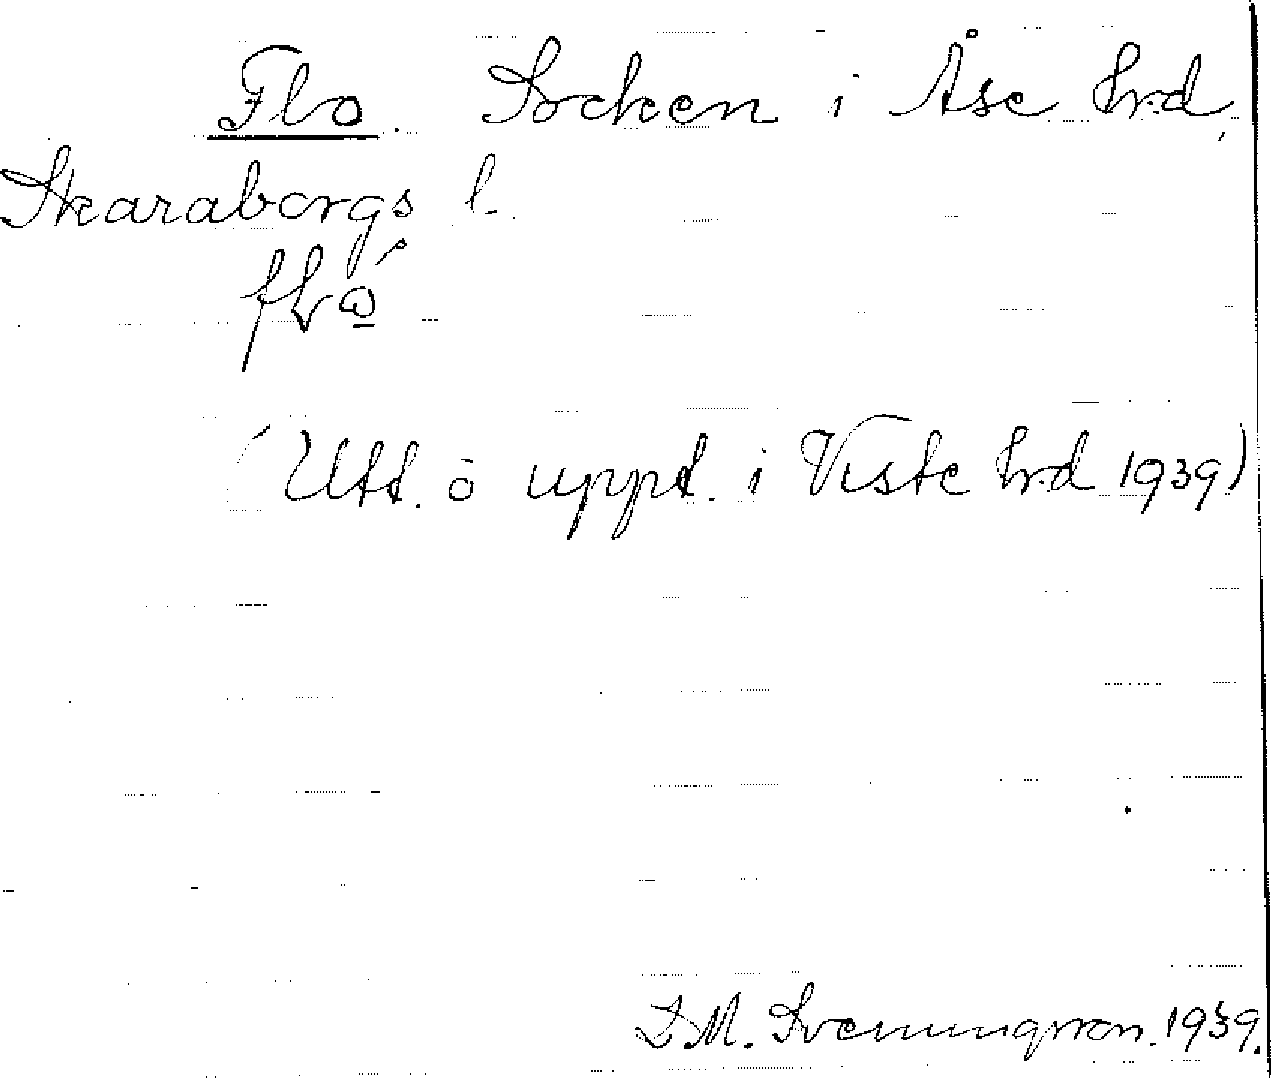 Flo. Socken i Åse hrd,
Skaraborgs l.
(Utt. o uppt. i Viste hrd 1939)
D. M. Svenningsson. 1939.